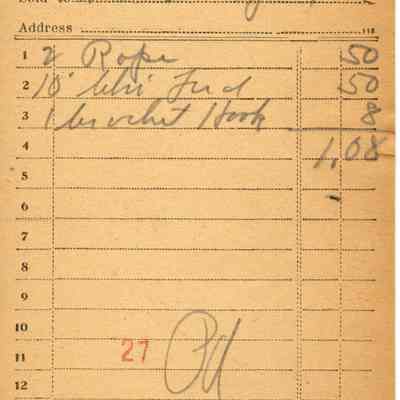 Sold to
Address 118
1 2 Rope 50
2 10 Chi Fud 50
3 1 Crochet Hook 8
4 1.08
5
6
7
8
9
10
11 27 Pd
12